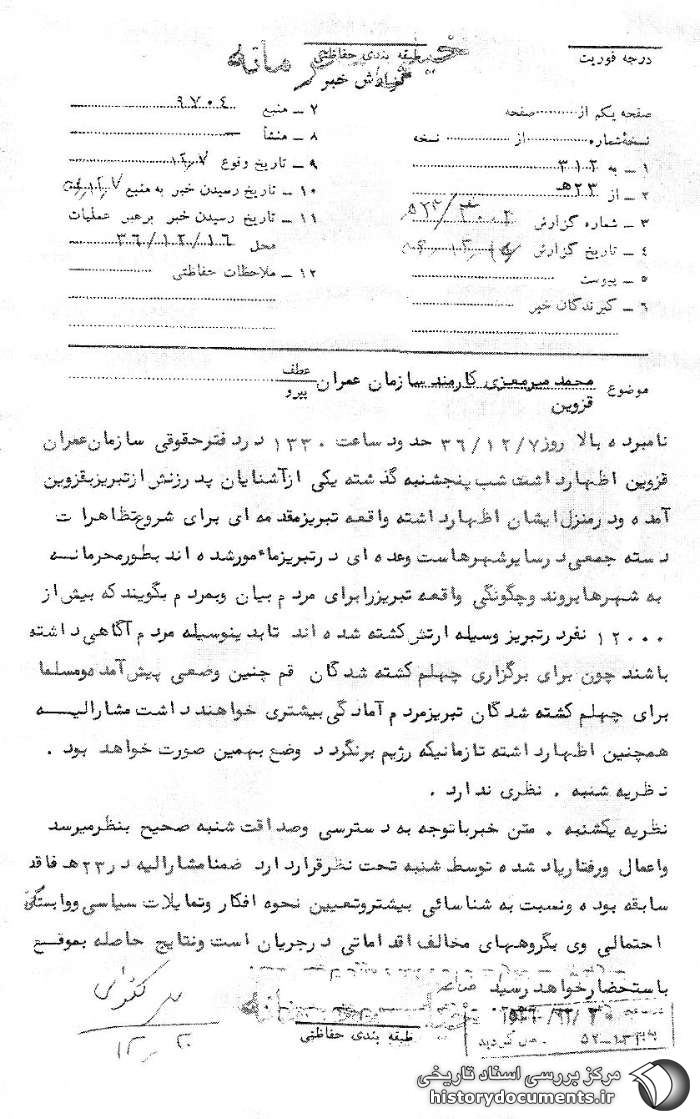 درجه فوریت
طبقه بندی حفاظتی
خیلی محرمانه
گزارش خبر
صفحه یکم از ............ صفحه
نسخه شماره ............ از ............ نسخه
۱ ــ به ۳۱۲
۲ ــ از ۲۳هـ
۳ ــ شماره گزارش
۴ ــ تاریخ گزارش
۵ ــ پیوست
۶ ــ گیرندگان خبر
۷ ــ منبع ۹۷۰۴
۸ ــ منشأ ــ
۹ ــ تاریخ وقوع
۱۰ ــ تاریخ رسیدن خبر به منبع
۱۱ ــ تاریخ رسیدن خبر برهبر عملیات
محل ۳۶/۱۲/۱۶
۱۲ ــ ملاحظات حفاظتی
موضوع محمد میرمعزی کارمند سازمان عمران
قزوین
عطف
پیرو
نامبرده بالا روز ۳۶/۱۲/۷ حدود ساعت ۱۳۳۰ در دفترحقوقی سازمان عمران
قزوین اظهارداشت شب پنجشنبه گذشته یکی ازآشنایان پدرزنش ازتبریزبقزوین
آمده ودرمنزل ایشان اظهارداشته واقعه تبریزمقدمه ای برای شروع تظاهرات
دسته جمعی درسایرشهرهاست وعده ای درتبریزماءمورشده اند بطورمحرمانه
به شهرهابروند وچگونگی واقعه تبریزرابرای مردم بیان وبمردم بگویندکه بیش از
۱۲۰۰۰ نفردرتبریز وسیله ارتش کشته شده اند تابدینوسیله مردم آگاهی داشته
باشند چون برای برگزاری چهلم کشته شدگان قم چنین وضعی پیش آمد ومسلما
برای چهلم کشته شدگان تبریزمردم آمادگی بیشتری خواهند داشت مشارالیه
همچنین اظهارداشته تازمانیکه رژیم برنگردد وضع بهمین صورت خواهد بود .
نظریه شنبه . نظری ندارد .
نظریه یکشنبه . متن خبرباتوجه به دسترسی وصداقت شنبه صحیح بنظرمیرسد
واعمال ورفتاریاد شده توسط شنبه تحت نظرقراردارد ضمنامشارالیه در۲۳هـ فاقد
سابقه بوده ونسبت به شناسائی بیشتروتعیین نحوه افکار وتمایلات سیاسی ووابستگی
احتمالی وی بگروههای مخالف اقداماتی درجریان است ونتایج حاصله بموقع
باستحضارخواهد رسید
طبقه بندی حفاظتی
مرکز بررسی اسناد تاریخی
historydocuments.ir